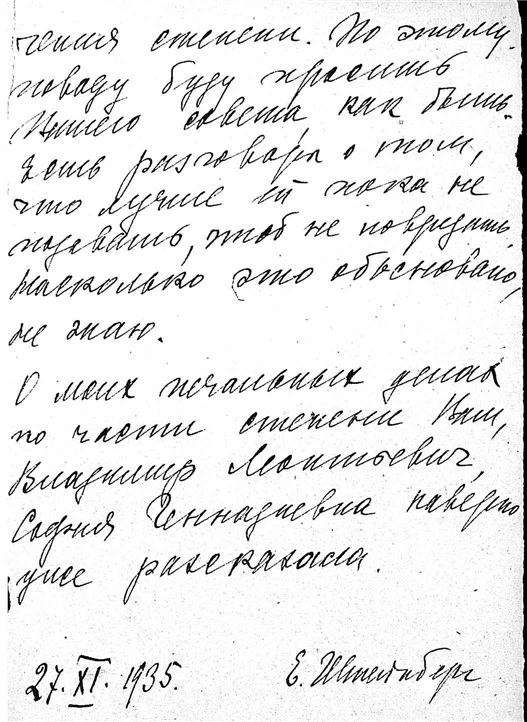 чения степени. По этому
поводу буду просить
Вашего совета, как быть.
Есть разговоры о том,
что лучше ей пока не
подавать, чтоб не повредить.
Насколько это обосновано,
не знаю.
О моих печальных делах
по части степени Вам,
Владимир Леонтьевич,
София Геннадиевна наверно
уже рассказала.
27. XI. 1935. Е. Штейнберг